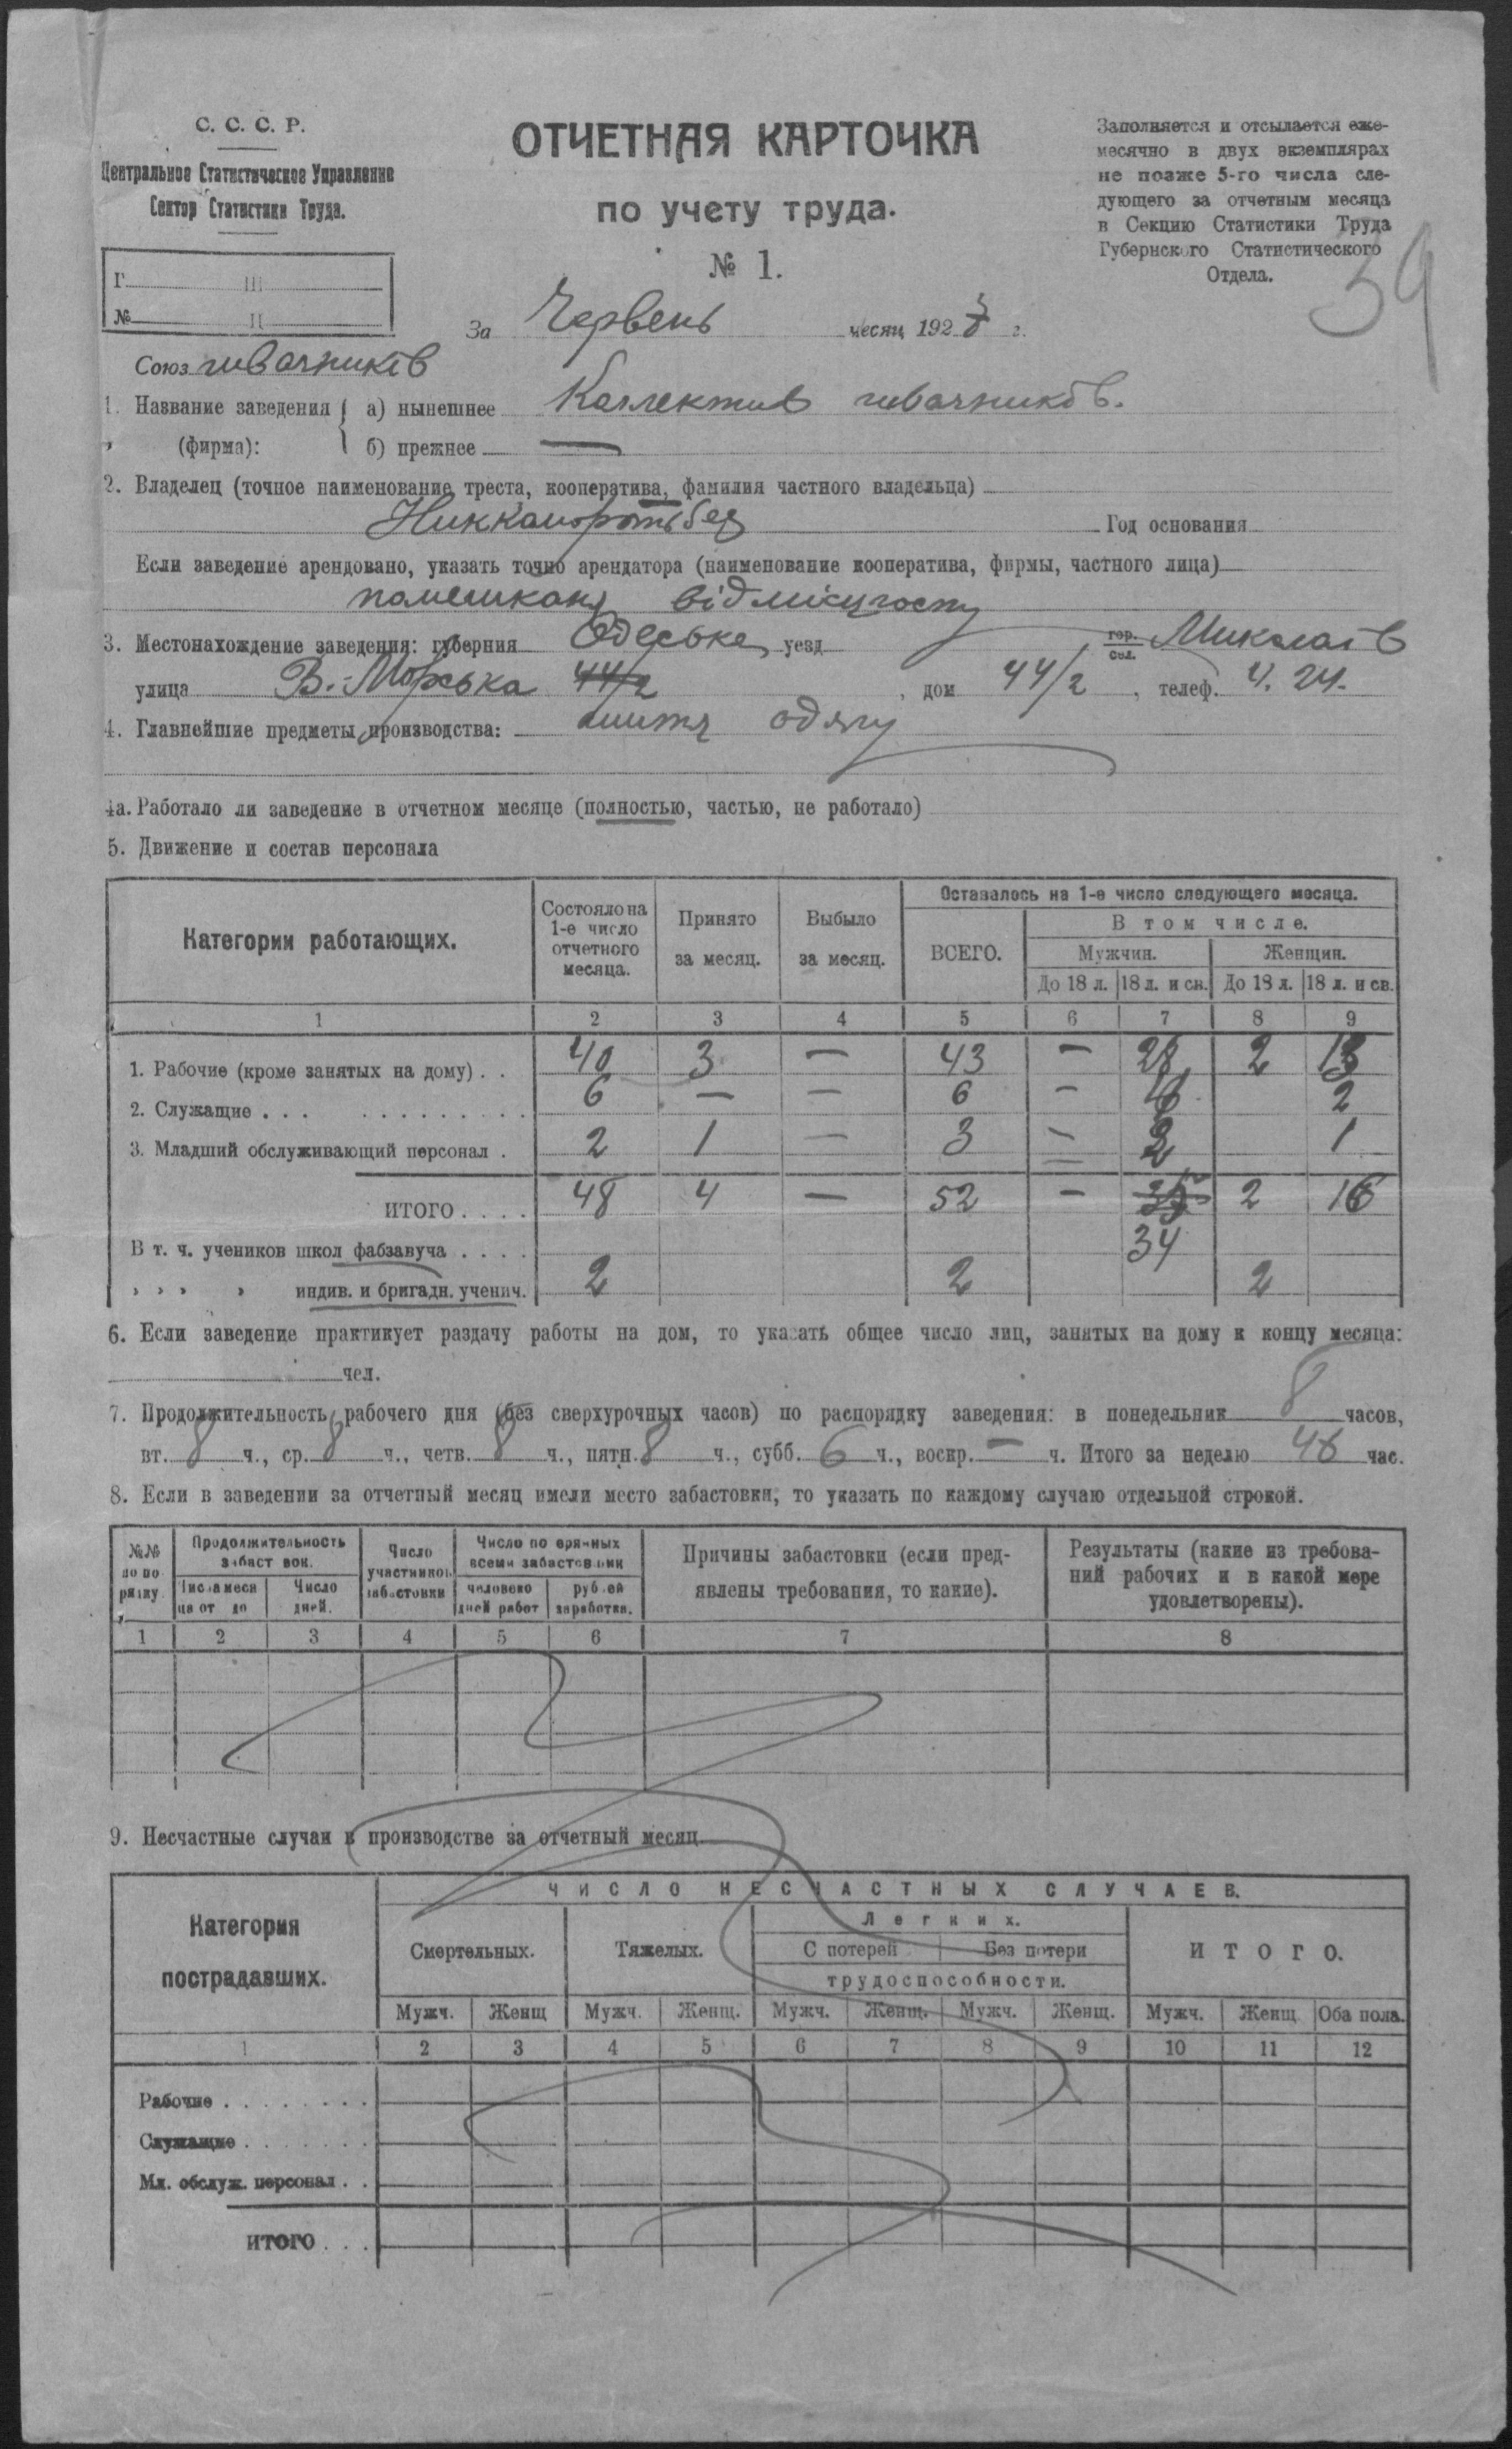 С. С. С. Р.
Центральное Статистическое Управление
Сектор Статистики Труда.
ОТЧЕТНАЯ КАРТОЧКА
по учету труда.
№ 1.
Заполняется и отсылается еже-
месячно в двух экземплярах
не позже 5-го числа сле-
дующего за отчетным месяца
в Секцию Статистики Труда
Губернского Статистического
Отдела.
39
Г. III
№ П
За Червень месяц 192 г.
Союз швачників
1. Название заведения а) нынешнее Коллектив швачників.
(фирма): б) прежнее —
2. Владелец (точное наименование треста, кооператива, фамилия частного владельца)
Год основания
Если заведение арендовано, указать точно арендатора (наименование кооператива, фирмы, частного лица)
помешканя від місцгоспу
3. Местонахождение заведения: губерния Одеська, уезд гор. сел. Миколаїв
улица В.-Морська 44/2, дом 44/2, телеф. 4. 24.
4. Главнейшие предметы производства: шиття одягу
4а. Работало ли заведение в отчетном месяце (полностью, частью, не работало)
5. Движение и состав персонала
Категории работающих. Состояло на 1-е число отчетного месяца. Принято за месяц. Выбыло за месяц. Оставалось на 1-е число следующего месяца.
ВСЕГО. В том числе.
Мужчин. Женщин.
До 18 л. 18 л. и св. До 18 л. 18 л. и св.
1 2 3 4 5 6 7 8 9
1. Рабочие (кроме занятых на дому) . . 40 3 — 43 — 28 2 13
2. Служащие . . . 6 — — 6 — 4 2
3. Младший обслуживающий персонал . 2 1 — 3 — 2 1
ИТОГО . . . . 48 4 — 52 — 2 16
34
В т. ч. учеников школ фабзавуча . . . .
„ „ „ „ индив. и бригадн. ученич. 2 2 2
6. Если заведение практикует раздачу работы на дом, то указать общее число лиц, занятых на дому к концу месяца:
чел.
7. Продолжительность рабочего дня (без сверхурочных часов) по распорядку заведения: в понедельник 8 часов,
вт. 8 ч., ср. 8 ч., четв. 8 ч., пятн. 8 ч., субб. 6 ч., воскр. — ч. Итого за неделю 46 час.
8. Если в заведении за отчетный месяц имели место забастовки, то указать по каждому случаю отдельной строкой.
№№ по по рядку. Продолжительность забастовок. Число участников забастовки Число потерянных всеми забастовками Причины забастовки (если пред-явлены требования, то какие). Результаты (какие из требова-ний рабочих и в какой мере удовлетворены).
Числа месяца от до Число дней. человеко дней работ рублей заработка.
1 2 3 4 5 6 7 8
9. Несчастные случаи в производстве за отчетный месяц
Категория пострадавших. ЧИСЛО НЕСЧАСТНЫХ СЛУЧАЕВ.
Смертельных. Тяжелых. Легких. ИТОГО.
С потерей Без потери
трудоспособности.
Мужч. Женщ Мужч. Женщ. Мужч. Женщ. Мужч. Женщ. Мужч. Женщ. Оба пола.
1 2 3 4 5 6 7 8 9 10 11 12
Рабочие . . . . . . . .
Служащие . . . . . . .
Мл. обслуж. персонал . .
ИТОГО . . .